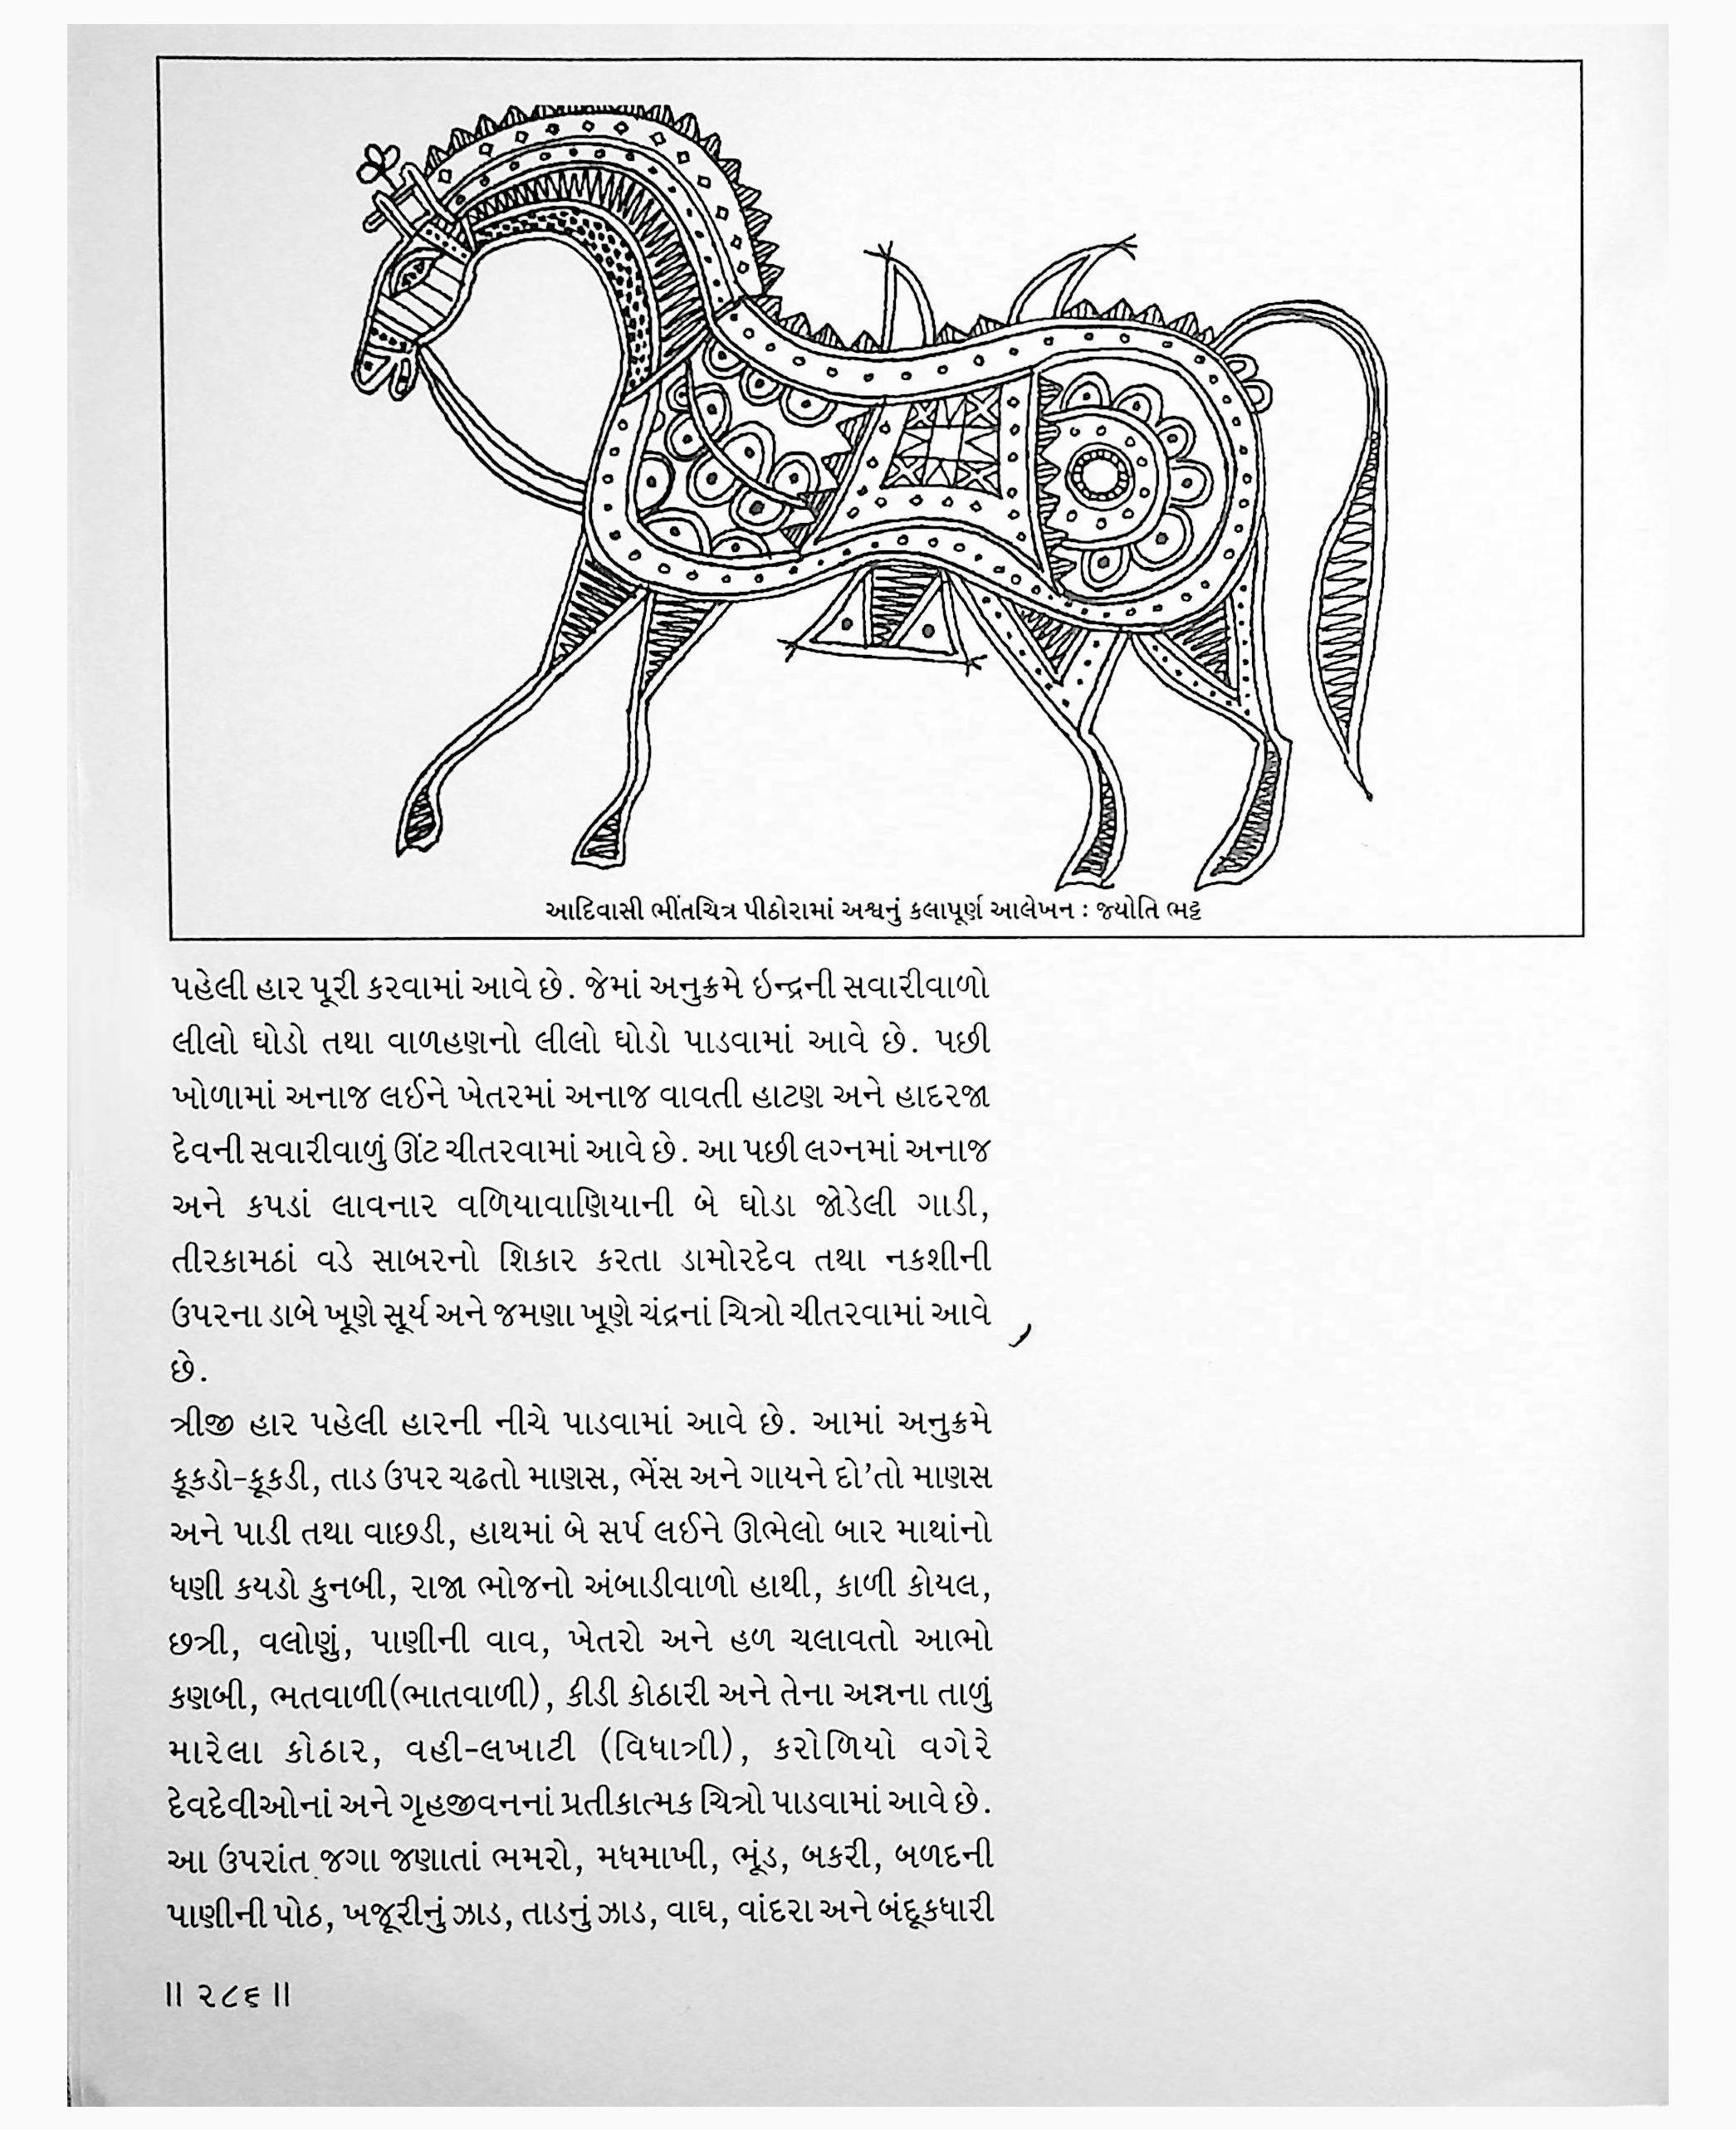 આદિવાસી ભીંતચિત્ર પીઠોરામાં અશ્વનું કલાપૂર્ણ આલેખન : જ્યોતિ ભટ્ટ
પહેલી હાર પૂરી કરવામાં આવે છે. જેમાં અનુક્રમે ઇન્દ્રની સવારીવાળો
લીલો ઘોડો તથા વાળહણનો લીલો ઘોડો પાડવામાં આવે છે. પછી
ખોળામાં અનાજ લઈને ખેતરમાં અનાજ વાવતી હાટણ અને હાદરજા
દેવની સવારીવાળું ઊંટ ચીતરવામાં આવે છે. આ પછી લગ્નમાં અનાજ
અને કપડાં લાવનાર વળિયાવાણિયાની બે ઘોડા જોડેલી ગાડી,
તીરકામઠાં વડે સાબરનો શિકાર કરતા ડામોરદેવ તથા નકશીની
ઉપરના ડાબે ખૂણે સૂર્ય અને જમણા ખૂણે ચંદ્રનાં ચિત્રો ચીતરવામાં આવે
છે.
ત્રીજી હાર પહેલી હારની નીચે પાડવામાં આવે છે. આમાં અનુક્રમે
કૂકડો-કૂકડી, તાડ ઉપર ચઢતો માણસ, ભેંસ અને ગાયને દો'તો માણસ
અને પાડી તથા વાછડી, હાથમાં બે સર્પ લઈને ઊભેલો બાર માથાંનો
ધણી કયડો કુનબી, રાજા ભોજનો અંબાડીવાળો હાથી, કાળી કોયલ,
છત્રી, વલોણું, પાણીની વાવ, ખેતરો અને હળ ચલાવતો આભો
કણબી, ભતવાળી(ભાતવાળી), કીડી કોઠારી અને તેના અન્નના તાળું
મારેલા કોઠાર, વહી-લખાટી (વિધાત્રી), કરોળિયો વગેરે
દેવદેવીઓનાં અને ગૃહજીવનનાં પ્રતીકાત્મક ચિત્રો પાડવામાં આવે છે.
આ ઉપરાંત જગા જણાતાં ભમરો, મધમાખી, ભૂંડ, બકરી, બળદની
પાણીની પોઠ, ખજૂરીનું ઝાડ, તાડનું ઝાડ, વાઘ, વાંદરા અને બંદૂકધારી
॥ ૨૮૬ ॥